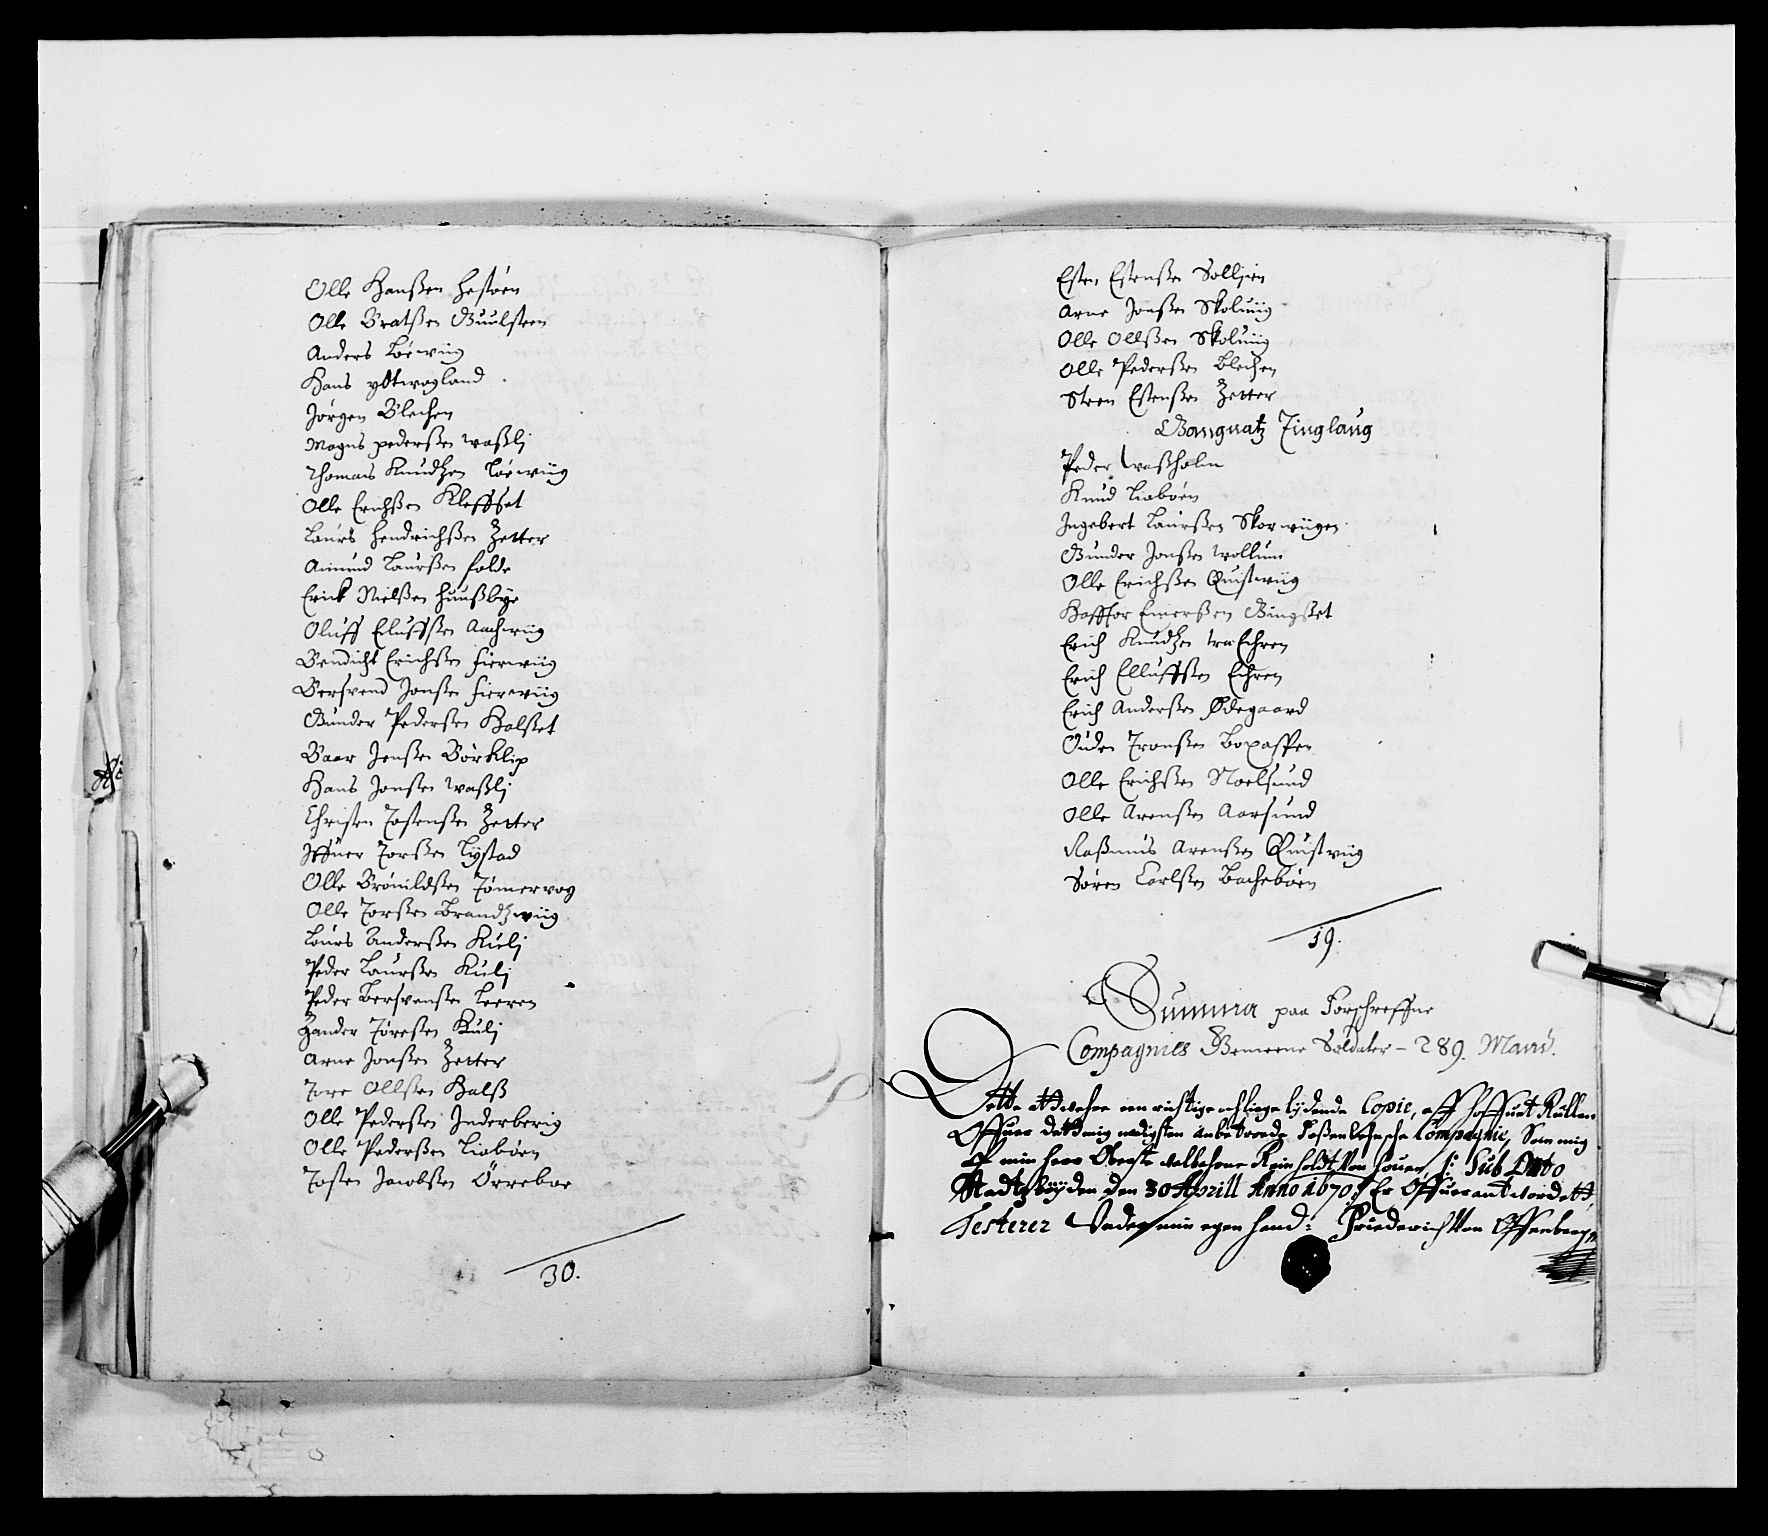 Olle Hanßen Hestöen
Olle Bratßen Guulsteen
Anders Löewiig
Hans ydtwogland
Jörgen Blechen
Mogns pederßen Waßlj
Thomas Knudtzen Löewiig
Olle Erichßen Kleffset
Laurs Hendrichßen Zetter
Amund Laurßen folde
Erick Nielßen Huußbye
Oluff Elluffßen Aachwiig
Bendicht Erichßen fierwiig
Bersvend Jonßen fierwiig
Gunder Pederßen Halßet
Baar Jenßen Börklip
Hans Jonßen Waßlj
Christen Tostenßen Zetter
Iffuer Torßen Lystad
Olle Brönildßen Tömervog
Olle Torßen Brandtzwiig
Laurs Anderßen Kielj
Peder Laurßen Kulj
Peder Bersvenßen Leeren
Zander Töresßen Kulj
Arne Jonßen Zetter
Tore Ollßen Halß
Olle Pederßen Inderberig
Olle Pederßen Liaböen
Tosten Jacobßen Örreboe
30.
Esten Estenßen Solljen
Arne Jonßen Skoluiig
Olle Ollßen Skoluiig
Olle Pederßen Blechen
Steen Estenßen Zetter
Gangnatz Tinglaug
Peder Waßholm
Knud Liaböen
Ingebert Laurßen Skorwiigen
Gunder Jonßen Wollum
Olle Erichßen Quistwiig
Hafftor Einerßen Gingset
Erich Knudtzen tra Echren
Erich Elluffßen Echren
Erich Anderßen Ødegaard
Ouden Tronßen Boxaspen
Olle Erichßen Noelsund
Olle Arenßen Aarsund
Raßmus Arenßen Quistviig
Sören Carlßen Bacheböen
19.
Summa paa Forschreffne
Compagnies Gemeene Soldater – 289. Mand.
Dette att wehre een richtige och liege lydende Copie, aff Hoffuit Rullen
Offuer dett mig nedigsten anbetroede Foßen Lehnsche Compagnie, Som mig
af min Herr Oberste welbohrne Reinholdt Von Houen, S: Sub Dato
Stadtzböyden den 30 Aprill Anno 1670. Er Offuerantwordett,
Testerer Under min egen hand: Friederich Von Offenberg